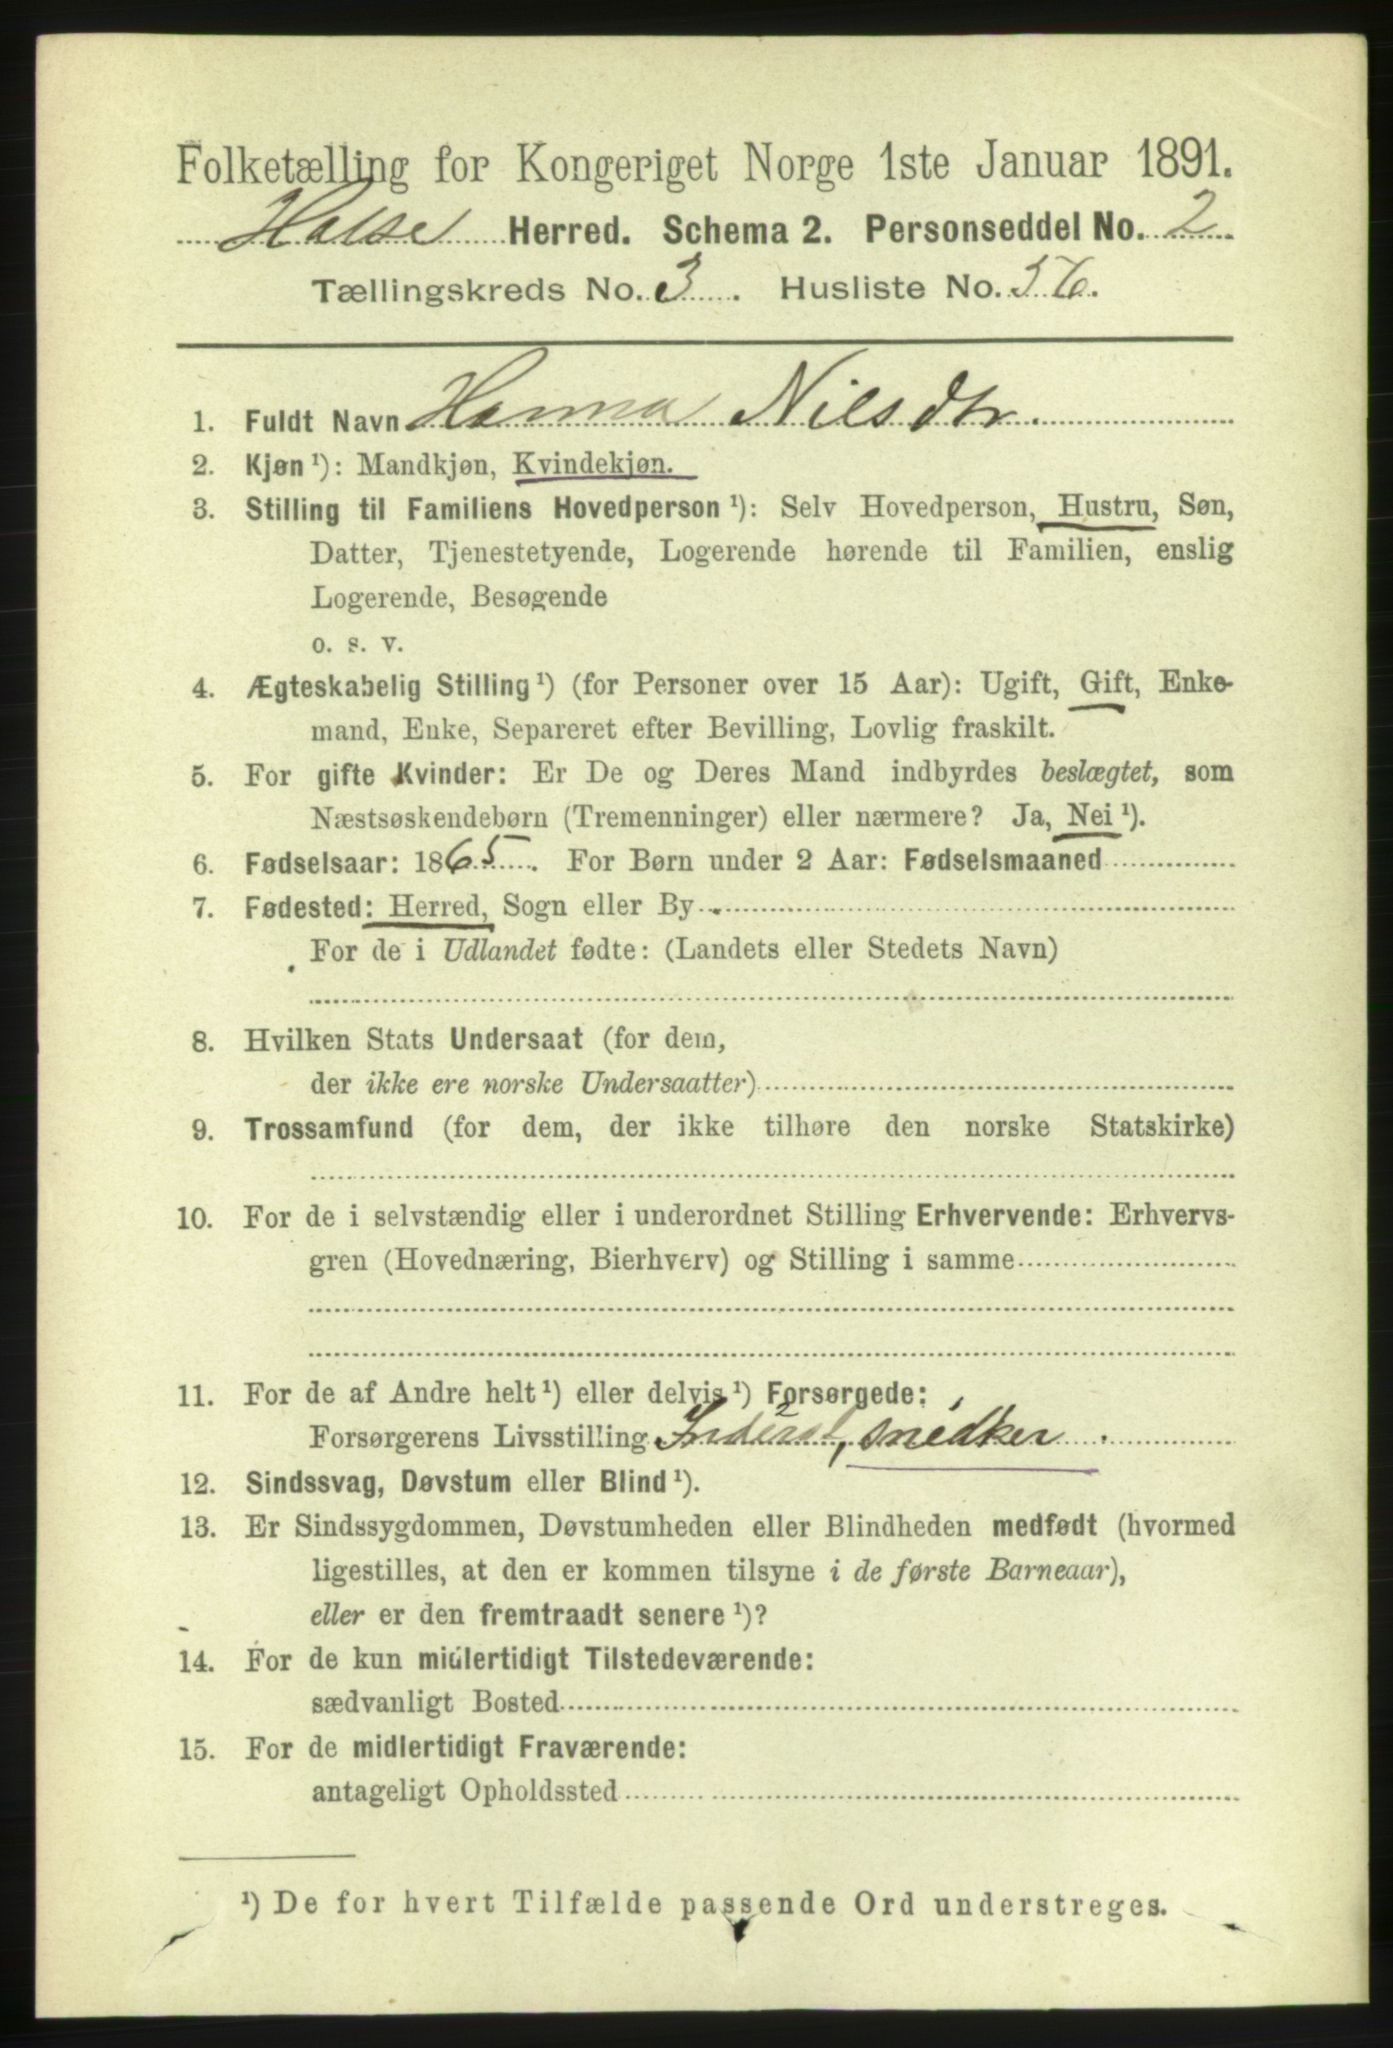 Folketælling for Kongeriget Norge 1ste Januar 1891.
Halse Herred. Schema 2. Personseddel No. 2
Tællingskreds No. 3. Husliste No. 56.
1. Fuldt Navn Hanna Nilsdtr.
2. Kjøn ¹): Mandkjøn, Kvindekjøn.
3. Stilling til Familiens Hovedperson ¹): Selv Hovedperson, Hustru, Søn,
Datter, Tjenestetyende, Logerende hørende til Familien, enslig
Logerende, Besøgende
o. s. v.
4. Ægteskabelig Stilling ¹) (for Personer over 15 Aar): Ugift, Gift, Enke-
mand, Enke, Separeret efter Bevilling, Lovlig fraskilt.
5. For gifte Kvinder: Er De og Deres Mand indbyrdes beslægtet, som
Næstsøskendebørn (Tremenninger) eller nærmere? Ja, Nei ¹).
6. Fødselsaar: 1865. For Børn under 2 Aar: Fødselsmaaned
7. Fødested: Herred, Sogn eller By
For de i Udlandet fødte: (Landets eller Stedets Navn)
8. Hvilken Stats Undersaat (for dem,
der ikke ere norske Undersaatter)
9. Trossamfund (for dem, der ikke tilhøre den norske Statskirke)
10. For de i selvstændig eller i underordnet Stilling Erhvervende: Erhvervs-
gren (Hovednæring, Bierhverv) og Stilling i samme
11. For de af Andre helt ¹) eller delvis ¹) Forsørgede:
Forsørgerens Livsstilling Inderst, snedker.
12. Sindssvag, Døvstum eller Blind ¹).
13. Er Sindssygdommen, Døvstumheden eller Blindheden medfødt (hvormed
ligestilles, at den er kommen tilsyne i de første Barneaar),
eller er den fremtraadt senere ¹)?
14. For de kun midlertidigt Tilstedeværende:
sædvanligt Bosted
15. For de midlertidigt Fraværende:
antageligt Opholdssted
¹) De for hvert Tilfælde passende Ord understreges.